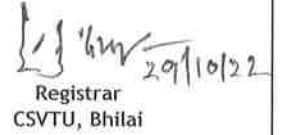 29/10/22
Registrar
CSVTU, Bhilai